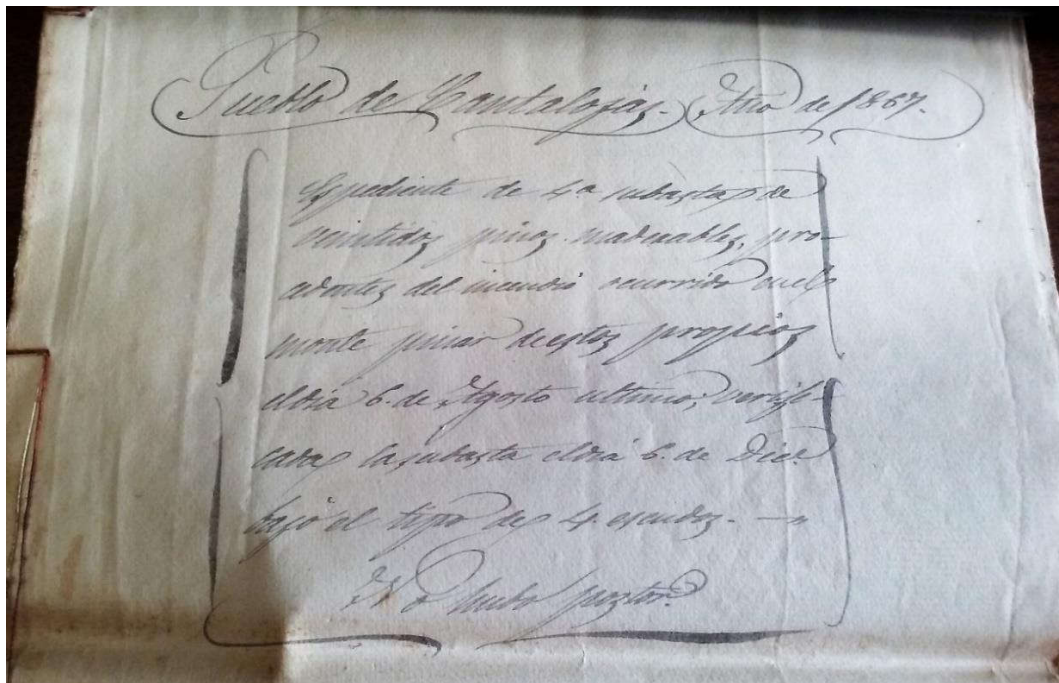 Pueblo de Cantalojas. Año de 1867.
Espediente de 4ª subasta de
veintidos pinos maderables, pro-
cedentes del incendio ocurrido en el
monte pinar de estos propios
el dia 6. de Agosto ultimo; verifi-
cada la subasta el dia 6. de Dice
bajo el tipo de 4. escudos. —"
No hubo postor.